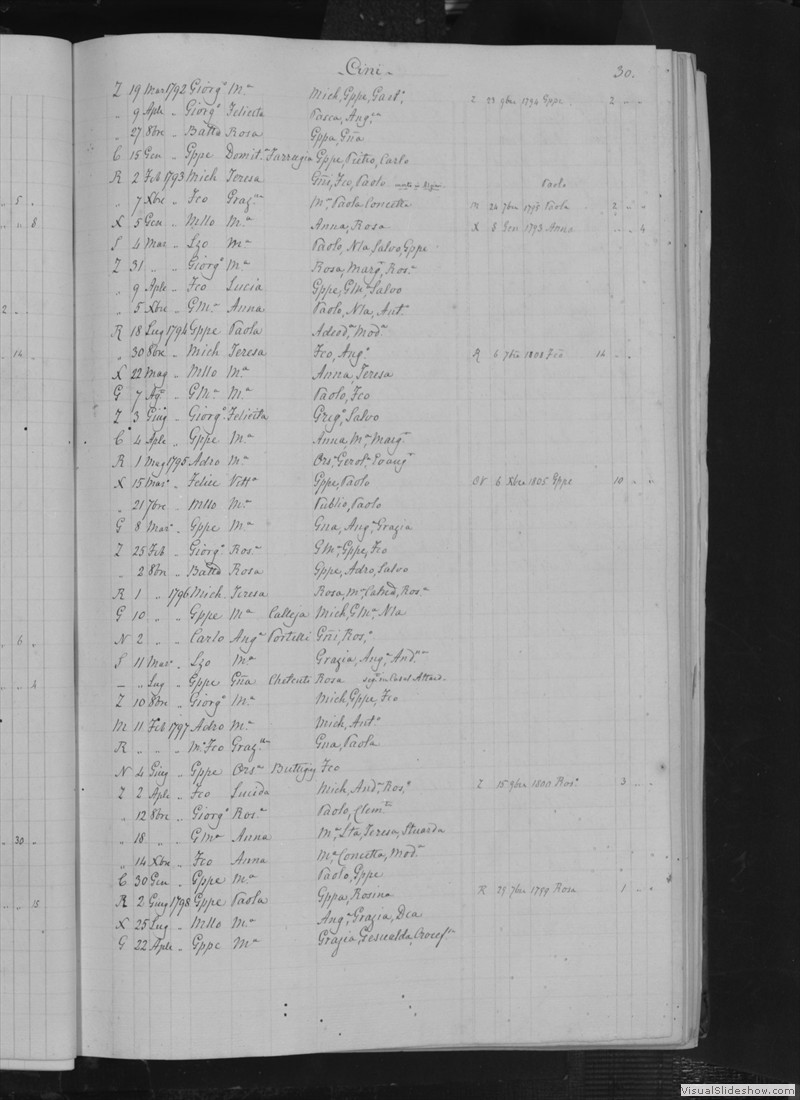 - Cini - 30.
Z 19 Mar 1792 Giorg.o M.a Mich, Gppe, Gast.e Z 23 9bre 1794 Gppe 2 " "
" 9 Aple " Giorg.o Felicita Pasca, Ang.a
" 27 8bre " Batta Rosa Gppa, Gña
C 15 Gen " Gppe Domit.a Farrugia Gppe, Pietro, Carlo
R 2 Feb 1793 Mich Teresa Gñi, Fco, Paolo
" 7 Xbre " Fco Graz.a M.a Paola Concetta M 24 7bre 1798 Paola 2 " "
Paolo
X 5 Gen " Mllo M.a Anna, Rosa X 8 Gen 1793 Anna " " 4
S 4 Mar " Lzo M.a Paolo, Nla, Salvo, Gppe
Z 31 " " Giorg.o M.a Rosa, Marg.a, Ros.a
" 9 Aple " Fco Lucia Gppe, GM.a, Salvo
" 5 Xbre " GM.a Anna Paolo, Nla, Ant.o
R 18 Lug 1794 Gppe Paola Adeod.a, Mod.a
" 30 8bre " Mich Teresa Fco, Ang.o R 6 7bre 1808 Fco 14 " "
X 22 Mag " Mllo M.a Anna, Teresa
G 7 Ag.o " GM.a M.a Paolo, Fco
Z 3 Giug " Giorg.o Felicita Greg.o, Salvo
C 4 Aple " Gppe M.a Anna, M.a, Marg.a
R 1 Mag 1795 Adro M.a Ors.a, Gerol.a, Evang.a
X 15 Mar " Felice Vitt.a Gppe, Paolo 6 Xbre 1805 Gppe 10 " "
" 21 7bre " Mllo M.a Publio, Paolo
G 8 Mar " Gppe M.a Gna, Ang.a, Grazia
Z 25 Feb " Giorg.o Ros.a GM.a, Gppe, Fco
" 2 8bre " Batta Rosa Gppe, Adro, Salvo
R 1 " 1796 Mich Teresa Rosa, M.a, Cated, Ros.a
G 10 " " Gppe M.a Calleja Mich, GM.a, Nla
N 2 " " Carlo Ang.a Portelli Gñi, Ros.o
S 11 Mar " Lzo M.a Grazia, Ang.a, And.a
- " Lug " Gppe Gña Chetcuti Rosa seg.o in Casal Attard
Z 10 8bre " Giorg.o M.a Mich, Gppe, Fco
M 11 Feb 1797 Adro M.a Mich, Ant.o
R " " " M. Fco Graz.a Gna, Paola
N 4 Giug " Gppe Ors.a Buttigieg Fco
Z 2 Aple " Fco Lucida Mich, And.a, Ros.o Z 15 9bre 1800 Ros.o 3 " "
" 12 8bre " Giorg.o Ros.a Paolo, Clem.te
" 18 " " GM.a Anna M.a, Lta, Teresa, Stuarda
" 14 Xbre " Fco Anna M.a Concetta, Mod.a
C 30 Gen " Gppe M.a Paolo, Gppe
R 2 Giug 1798 Gppe Paola Gppa, Rosina R 29 7bre 1799 Rosa 1 " "
X 25 Lug " Mllo M.a Ang.a, Grazia, Dea
G 22 Aple " Gppe M.a Grazia, Gesualda, Crocef.a
VisualSlideshow.com